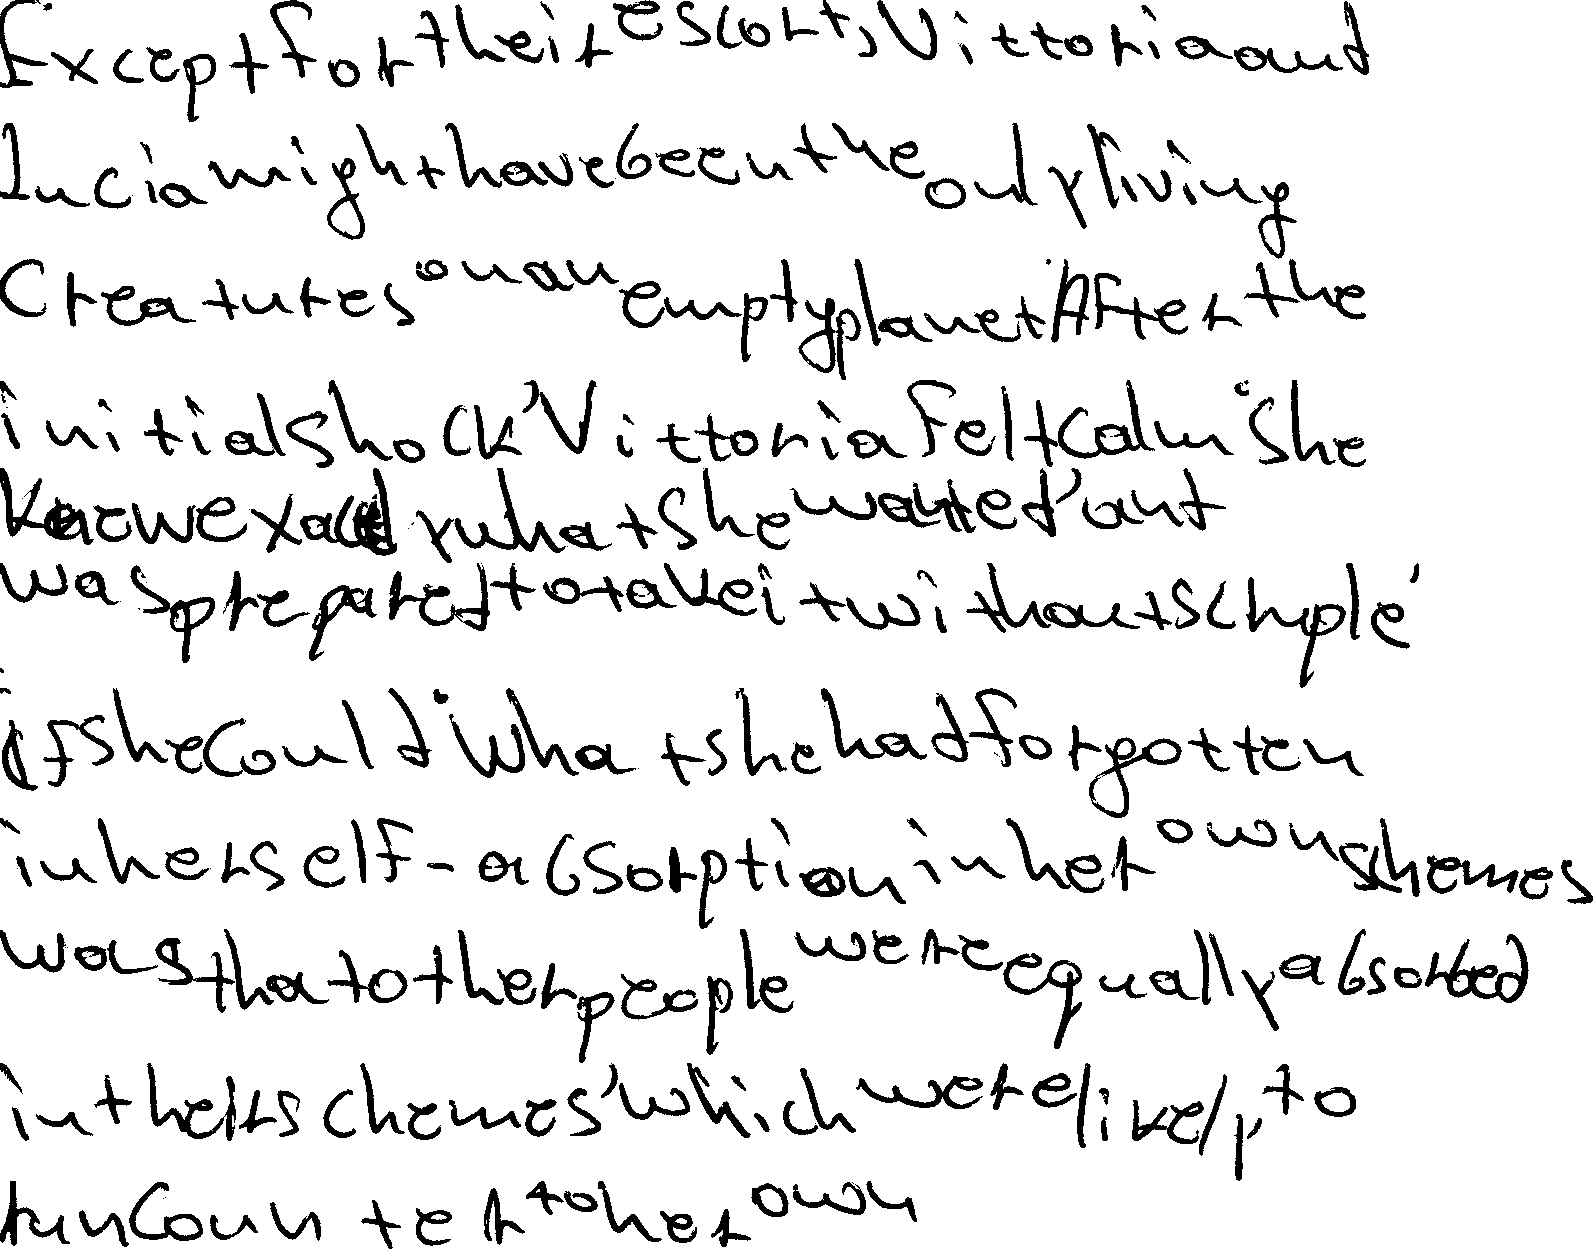 Except for their escort, Vittoria and
Lucia might have been the only living
Creatures on an empty planet. After the
initial shock, Vittoria felt calm. She
knew exactly what she wanted, and
was prepared to take it without scruple,
if she could. What she had forgotten
in her self-absorption in her own schemes
was that other people were equally absorbed
in theirs schemes, which were likely to
run Counter to her own